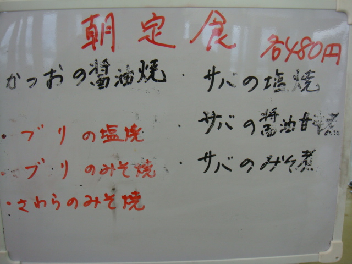 朝定食 各480円
かつおの醤油焼
・ブリの塩焼
・ブリのみそ焼
・さわらのみそ焼
・サバの塩焼
・サバの醤油甘煮
・サバのみそ煮